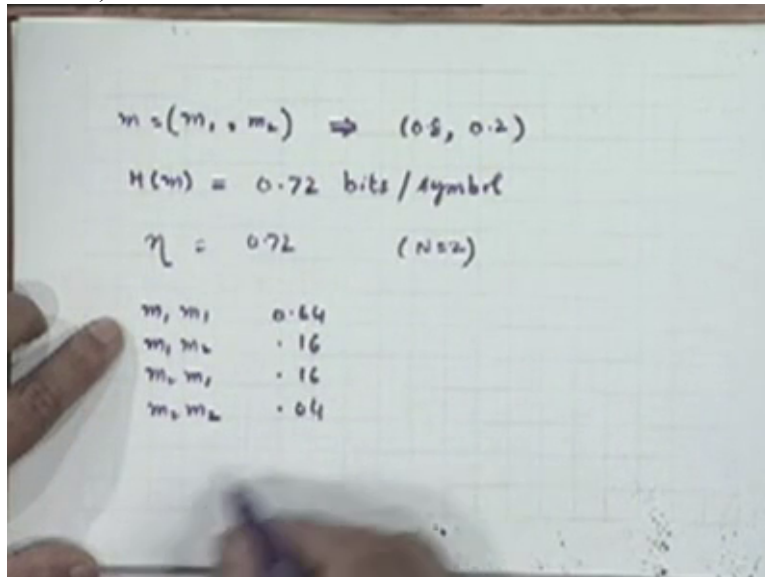 m = (m₁, m₂) ⇒ (0.8, 0.2)
H(m) = 0.72 bits/symbol
η = 0.72 (N=2)
m₁ m₁ 0.64
m₁ m₂ .16
m₂ m₁ .16
m₂ m₂ .04